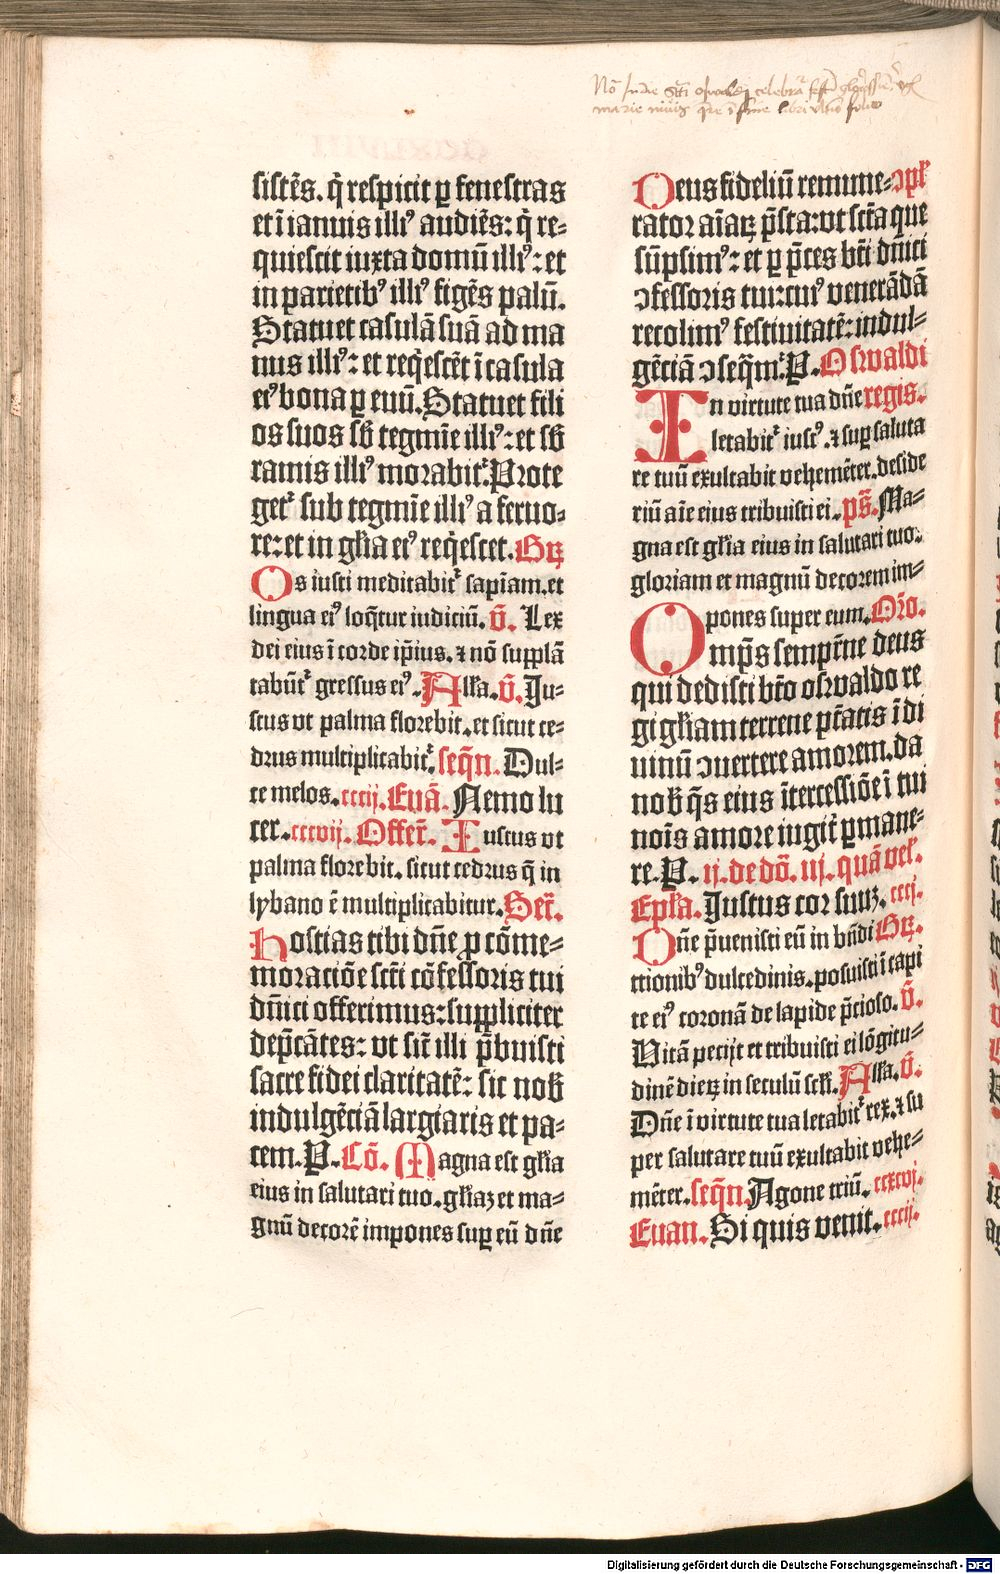 sistēs. q̄ respicit ꝑ fenestras
et ī ianuis illiꝰ audiēs: q̄ re-
quiescit iuxta domū illiꝰ: et
in parietibꝰ illiꝰ figēs palū.
Statuet casulā suā ad ma
nus illiꝰ: et req̄escēt ī casula
eiꝰ bona ꝑ euū. Statuet fili
os suos sb̄ tegmīe illiꝰ: et sb̄
ramis illiꝰ morabit᷑. Prote
get᷑ sub tegmīe illiꝰ a feruo-
re: et in gl̄ia eiꝰ req̄escet. Gꝝ
Os iusti meditabit᷑ sapīam. et
lingua eiꝰ loq̄tur iudiciū. v̄. Lex
dei eius ī corde ip̄ius. ⁊ nō supplā
tabūt᷑ gressus eiꝰ. All̄a. v̄. Ju-
stus vt palma florebit. et sicut ce-
drus multiplicabit᷑. seq̄n. Dul-
ce melos. cccij. Euā. Nemo lu
cer. cccvij. Offer̄. Iustus vt
palma florebit. sicut cedrus q̄ in
lybano ē multiplicabitur. Secr̄.
Hostias tibi dn̄e ꝓ cōme-
moratiōe scti cōfessoris tui
dn̄ici offerimus: suppliciter
dep̄cātes: vt sic̄ illi p̄buisti
sacre fidei claritatē: sic nob̄
indulgētiā largiaris et pa-
cem. P. Cō. Magna est gl̄ia
eius in salutari tuo. gl̄iaꝫ et ma-
gnū decorē impones suꝑ eū dn̄e
Deus fideliū remune- ɔpl̄
rator aīaꝝ p̄sta: vt scta que
sūpsimꝰ: et ꝑ p̄ces bti dn̄ici
ɔfessoris tui: cuiꝰ venerādā
recolimꝰ festiuitatē: indul-
gētiā ɔseq̄m᷑. P. Oswaldi
In virtute tua dn̄e regis.
letabit᷑ iustꝰ. ⁊ suꝑ saluta
re tuū exultabit vehemēter. deside
riū aīe eius tribuisti ei. ps̄. Ma-
gna est gl̄ia eius in salutari tuo:
gloriam et magnū decorem im-
pones super eum. Oro̅.
Omp̄s semp̄rne deus
qui dedisti bto oswaldo re
gi gl̄iam terrene ptatis ī di
uinū ɔuertere amorem. da
nob̄ q̄s eius ītercessiōe ī tui
noīs amore iugit᷑ ꝑmane-
re. P. ij. de dō. iij. quā vel̄.
Epl̄a. Justus cor suuꝫ. cccj.
Dn̄e p̄uenisti eū in bn̄di Gꝝ.
ctionibꝰ dulcedinis. posuisti ī capi
te eiꝰ coronā de lapide p̄cioso. v̄.
Vitā pecijt et tribuisti ei lōgitu-
dinē dieꝝ in seculū scl̄i. All̄a. v̄.
Dn̄e ī virtute tua letabit᷑ rex. ⁊ su
per salutare tuū exultabit vehe-
mēter. seq̄n. Agone triū. ccxcvj.
Euan. Si quis venit. cccij.
Digitalisierung gefördert durch die Deutsche Forschungsgemeinschaft - DFG